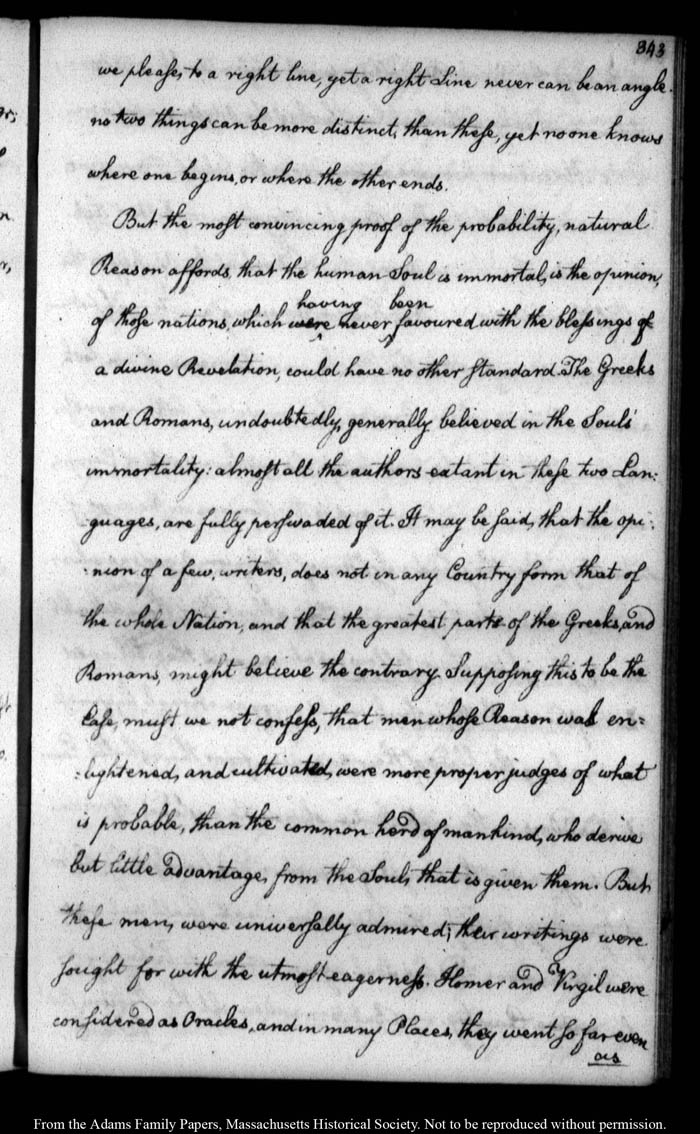 343
we please, to a right line, yet a right Line never can be an angle.
no two things can be more distinct, than these, yet no one knows
where one begins, or where the other ends.
But the most convincing proof of the probability, natural
Reason affords, that the human Soul is immortal, is the opinion,
having been
of those nations, which were never favoured with the blessings of
a divine Revelation, could have no other standard. The Greeks
and Romans, undoubtedly, generally believed in the Souls'
immortality: almost all the authors extant in these two Lan:
guages, are fully perswaded of it. It may be said, that the opi:
:nion of a few, writers, does not in any Country form that of
the whole Nation, and that the greatest parts of the Greeks, and
Romans, might believe the contrary. Supposing this to be the
Case, must we not confess, that men whose Reason was en=
:lightened, and cultivated, were more proper judges of what
is probable, than the common herd of mankind, who derive
but little advantage, from the Soul, that is given them. But
these men, were universally admired; their writings were
sought for with the utmost eagerness. Homer and Virgil were
considered as Oracles, and in many Places, they went so far even
as
From the Adams Family Papers, Massachusetts Historical Society. Not to be reproduced without permission.